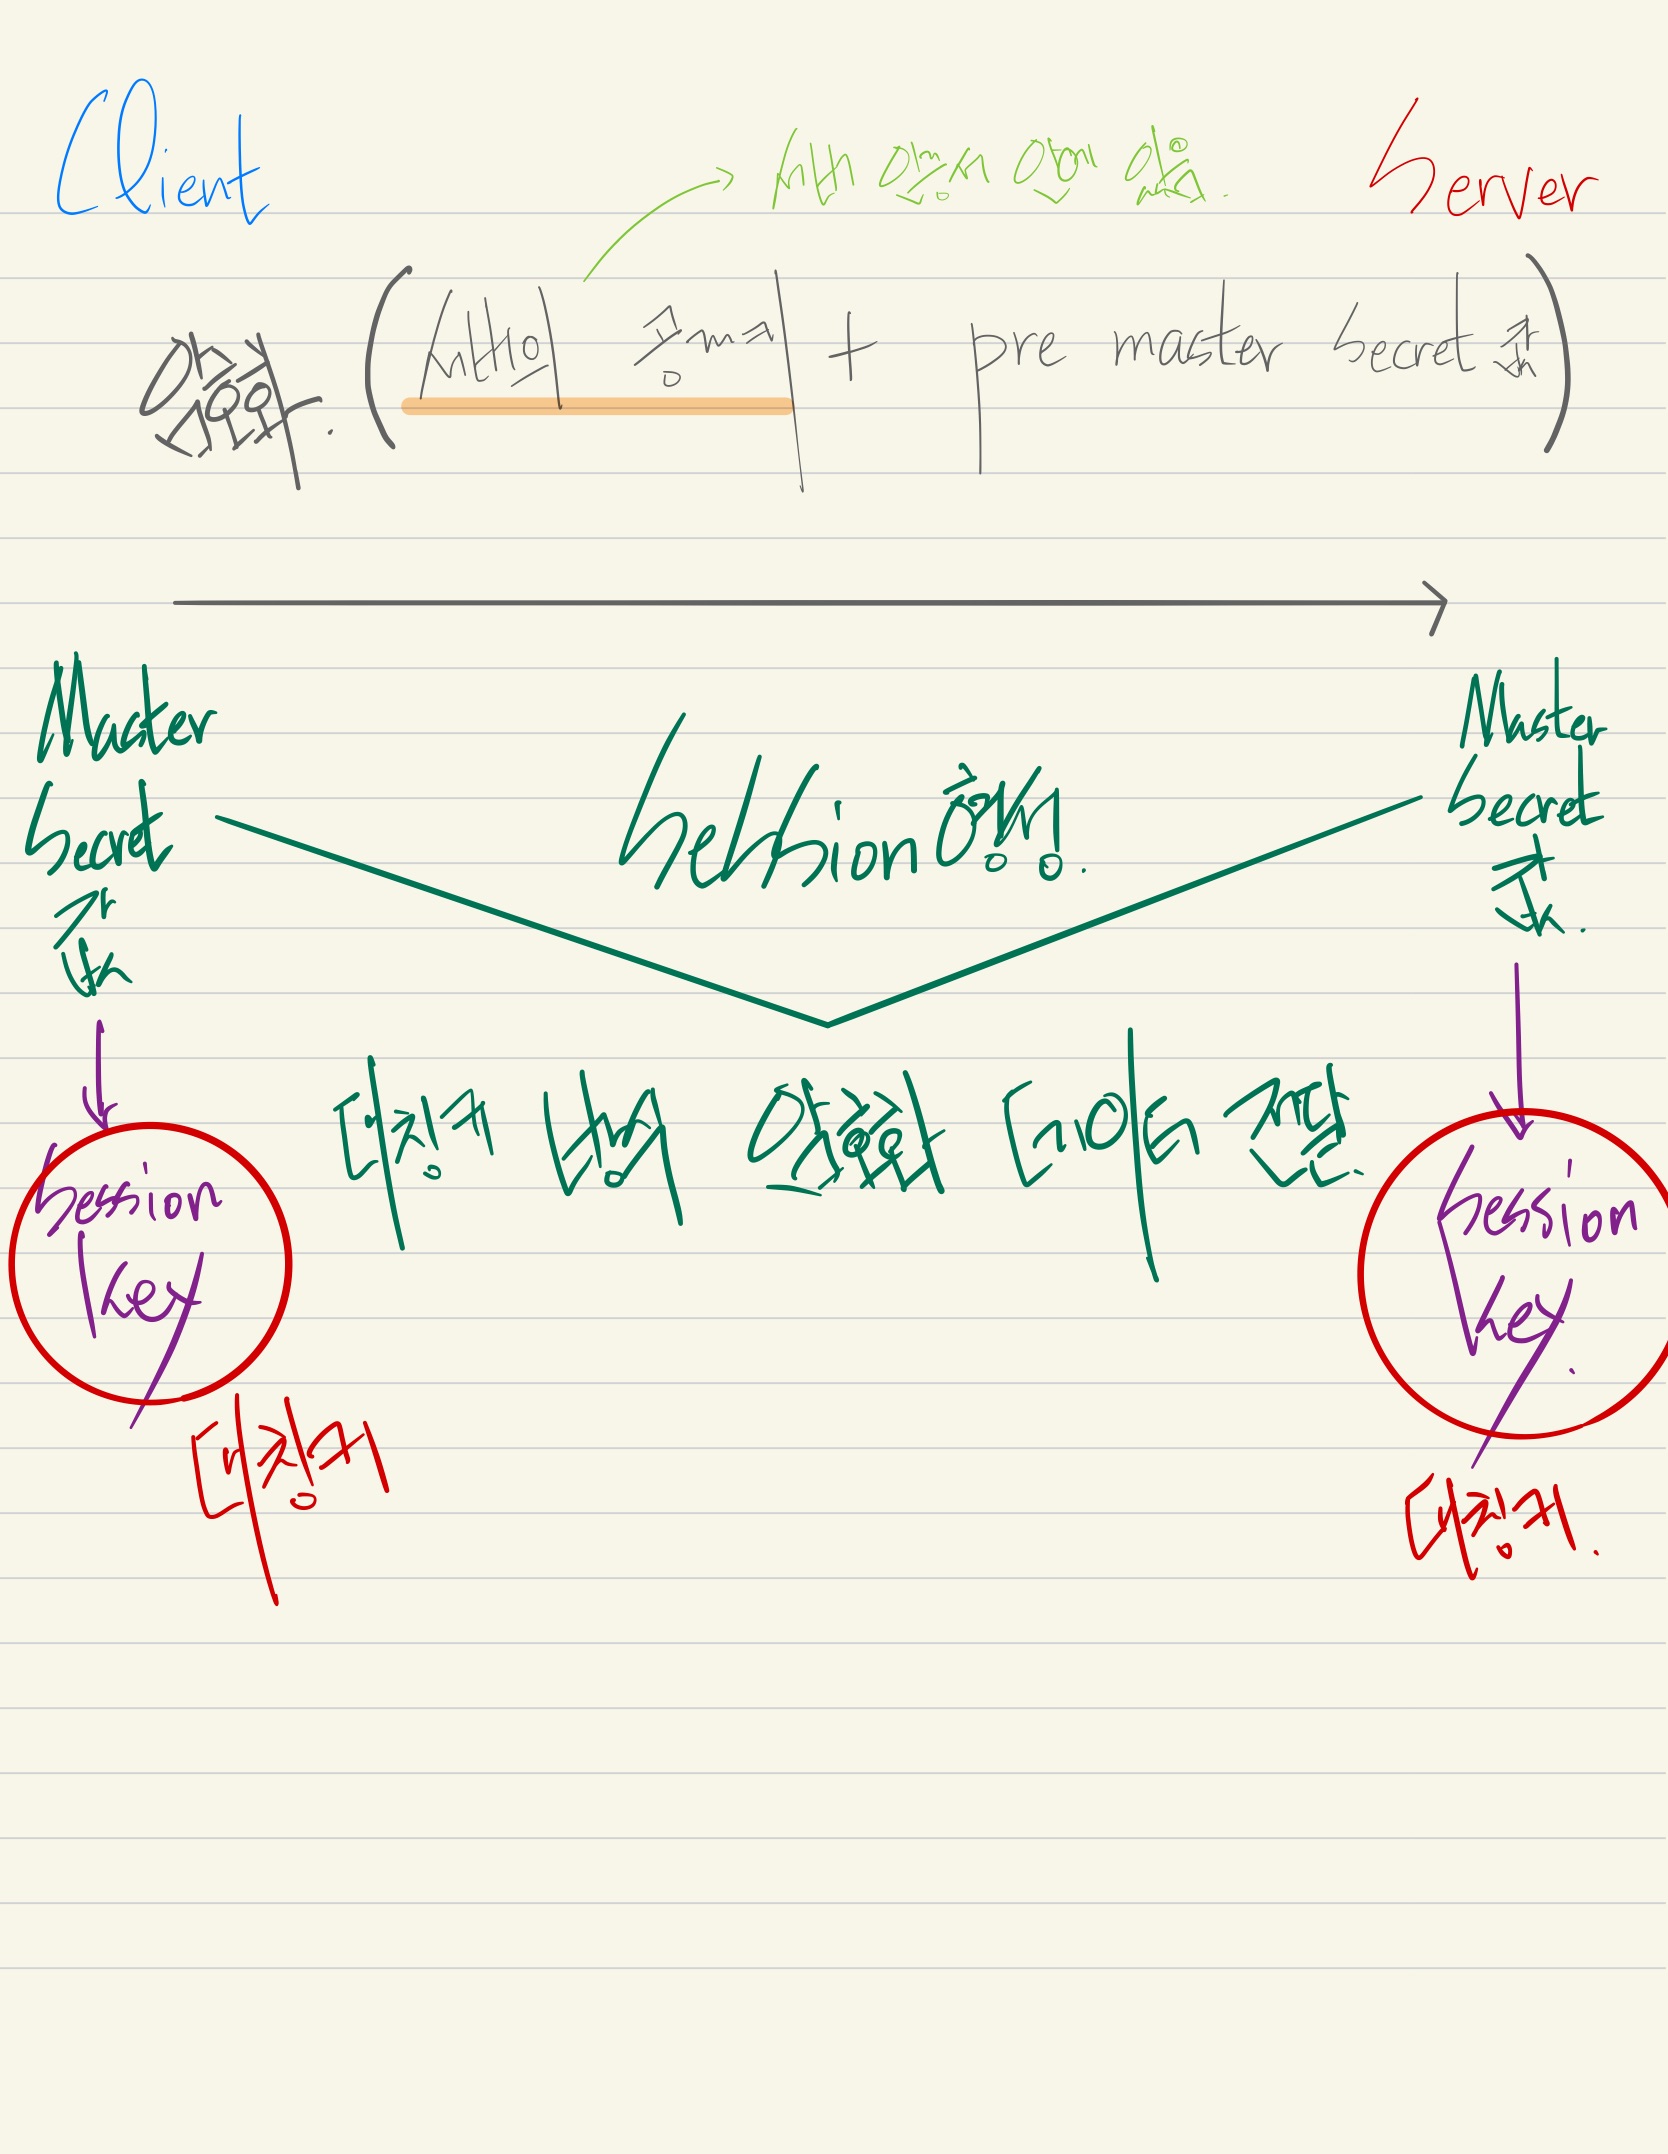 Client
서버 인증서 안에 있음.
Server
암호화. (서버의 공개키 + pre master Secret 값)
Master
Secret
값
Session 형성!
Master
Secret
값.
대칭키 방식 암호화 데이터 전달.
Session
Key
Session
key.
대칭키
대칭키.